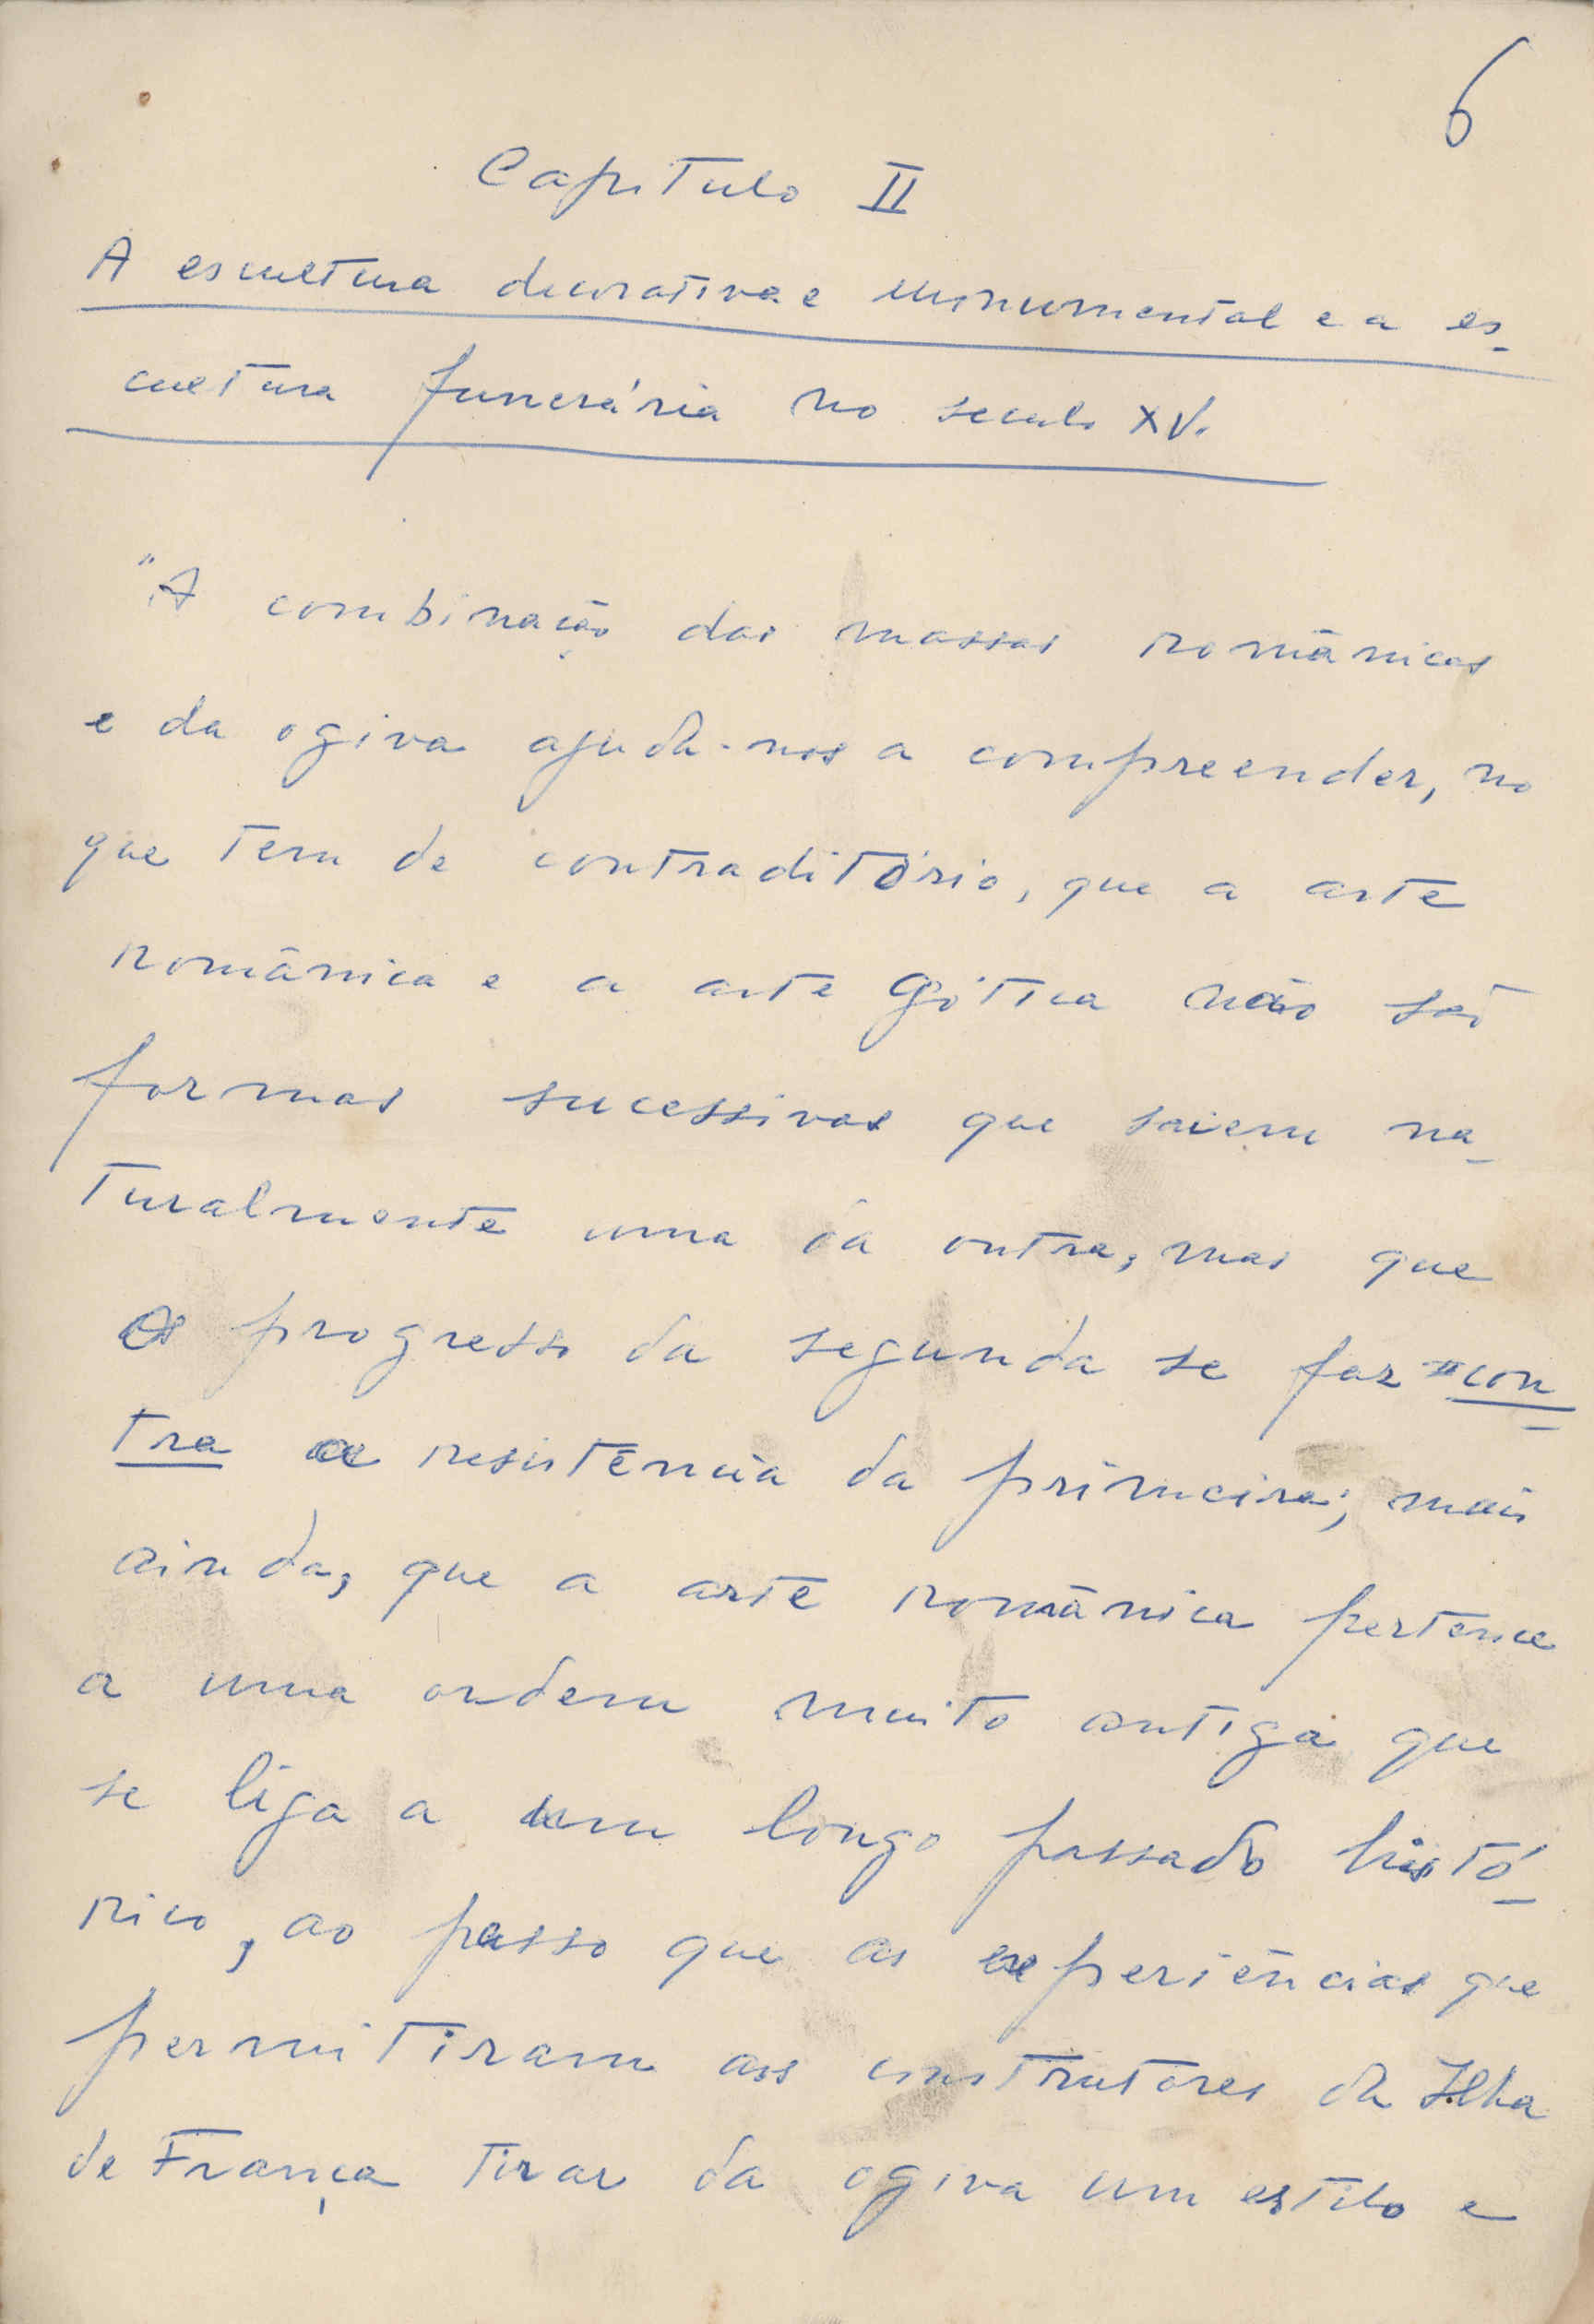 6
Capitulo II
A escultura decorativa e monumental e a es-
cultura funerária no seculo XV.
"A combinação das massas românicas
e da ogiva ajuda-nos a compreender, no
que tem de contraditório, que a arte
românica e a arte gótica não são
formas sucessivas que saiem na-
turalmente uma da outra, mas que
o progresso da segunda se faz "con-
tra a resistência da primeira; mais
ainda, que a arte românica pertence
a uma ordem muito antiga que
se liga a um longo passado histó-
rico, ao passo que as experiências que
permitiram aos construtores da Ilha
de França tirar da ogiva um estilo e